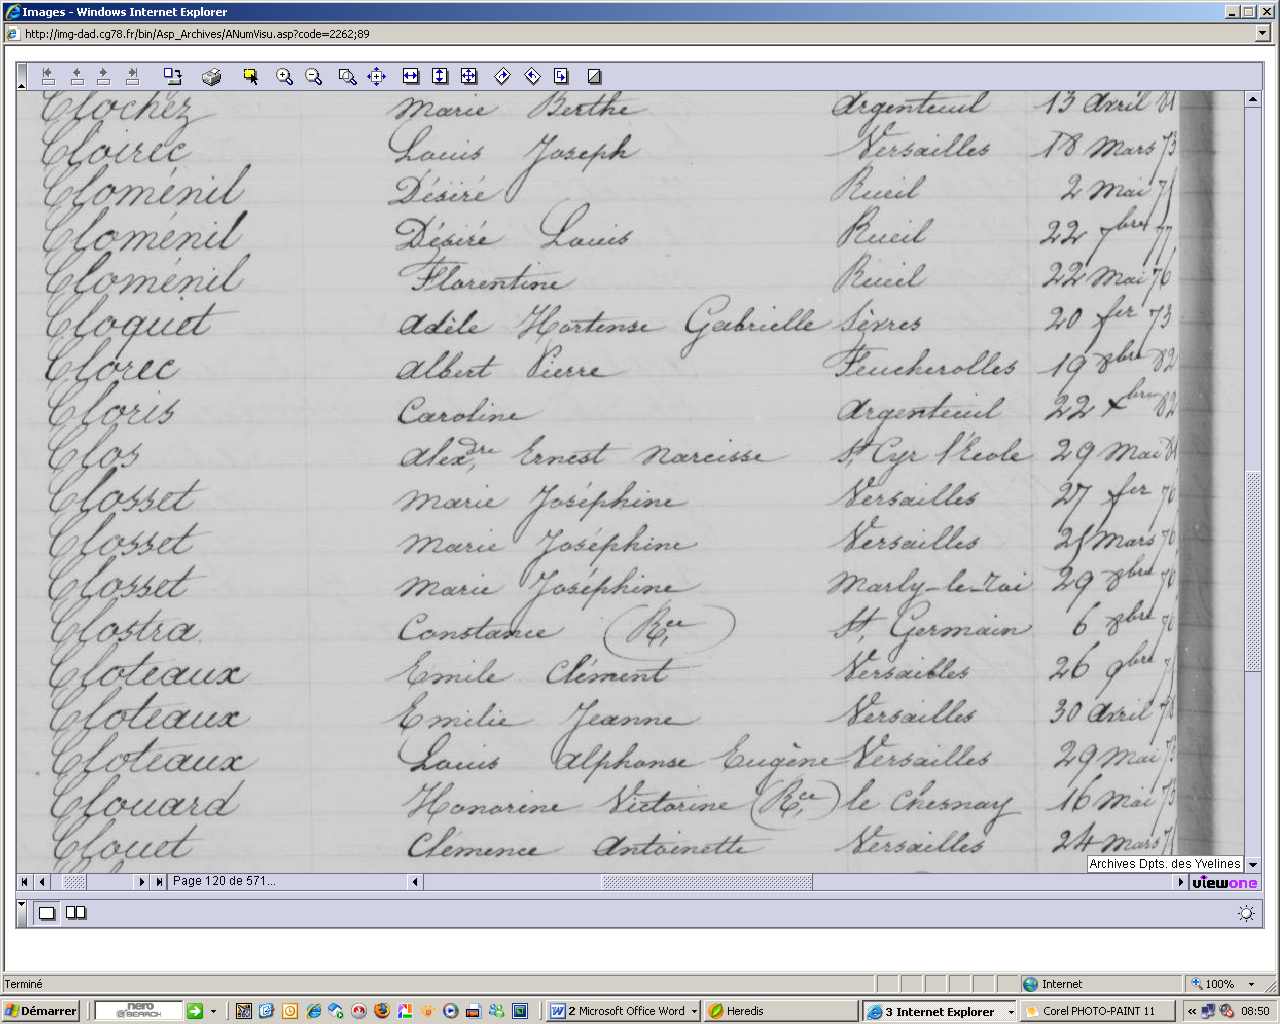 Images - Windows Internet Explorer
http://img-dad.cg78.fr/bin/Asp_Archives/ANumVisu.asp?code=2262;89
Clochez Marie Berthe Argenteuil 13 Avril 81
Cloirec Louis Joseph Versailles 18 Mars 73
Cloménil Désiré Rueil 2 Mai 75
Cloménil Désiré Louis Rueil 22 7bre 77
Cloménil Florentine Rueil 22 Mai 76
Cloquet Adèle Hortense Gabrielle Sèvres 20 fer 73
Clorec Albert Pierre Feucherolles 19 8bre 82
Cloris Caroline Argenteuil 22 Xbre 82
Clos Alexdre Ernest Narcisse St Cyr l'Ecole 29 Mai 81
Closset Marie Joséphine Versailles 27 fer
Closset Marie Joséphine Versailles Mars
Closset Marie Joséphine Marly-le-Roi 29 8bre
Clostra Constance (Rce) St Germain 6 8bre
Cloteaux Emile Clément Versailles 26 9bre
Cloteaux Emilie Jeanne Versailles 30 Avril 78
Cloteaux Louis Alphonse Eugène Versailles 29 Mai 73
Clouard Honorine Victorine (Rce) le Chesnay 16 Mai
Clouet Clémence Antoinette Versailles 24 Mars
Archives Dpts. des Yvelines
Page 120 de 571...
viewone
Terminé
Internet
100%
Démarrer
nero
SEARCH
2 Microsoft Office Word
Heredis
3 Internet Explorer
Corel PHOTO-PAINT 11
08:50